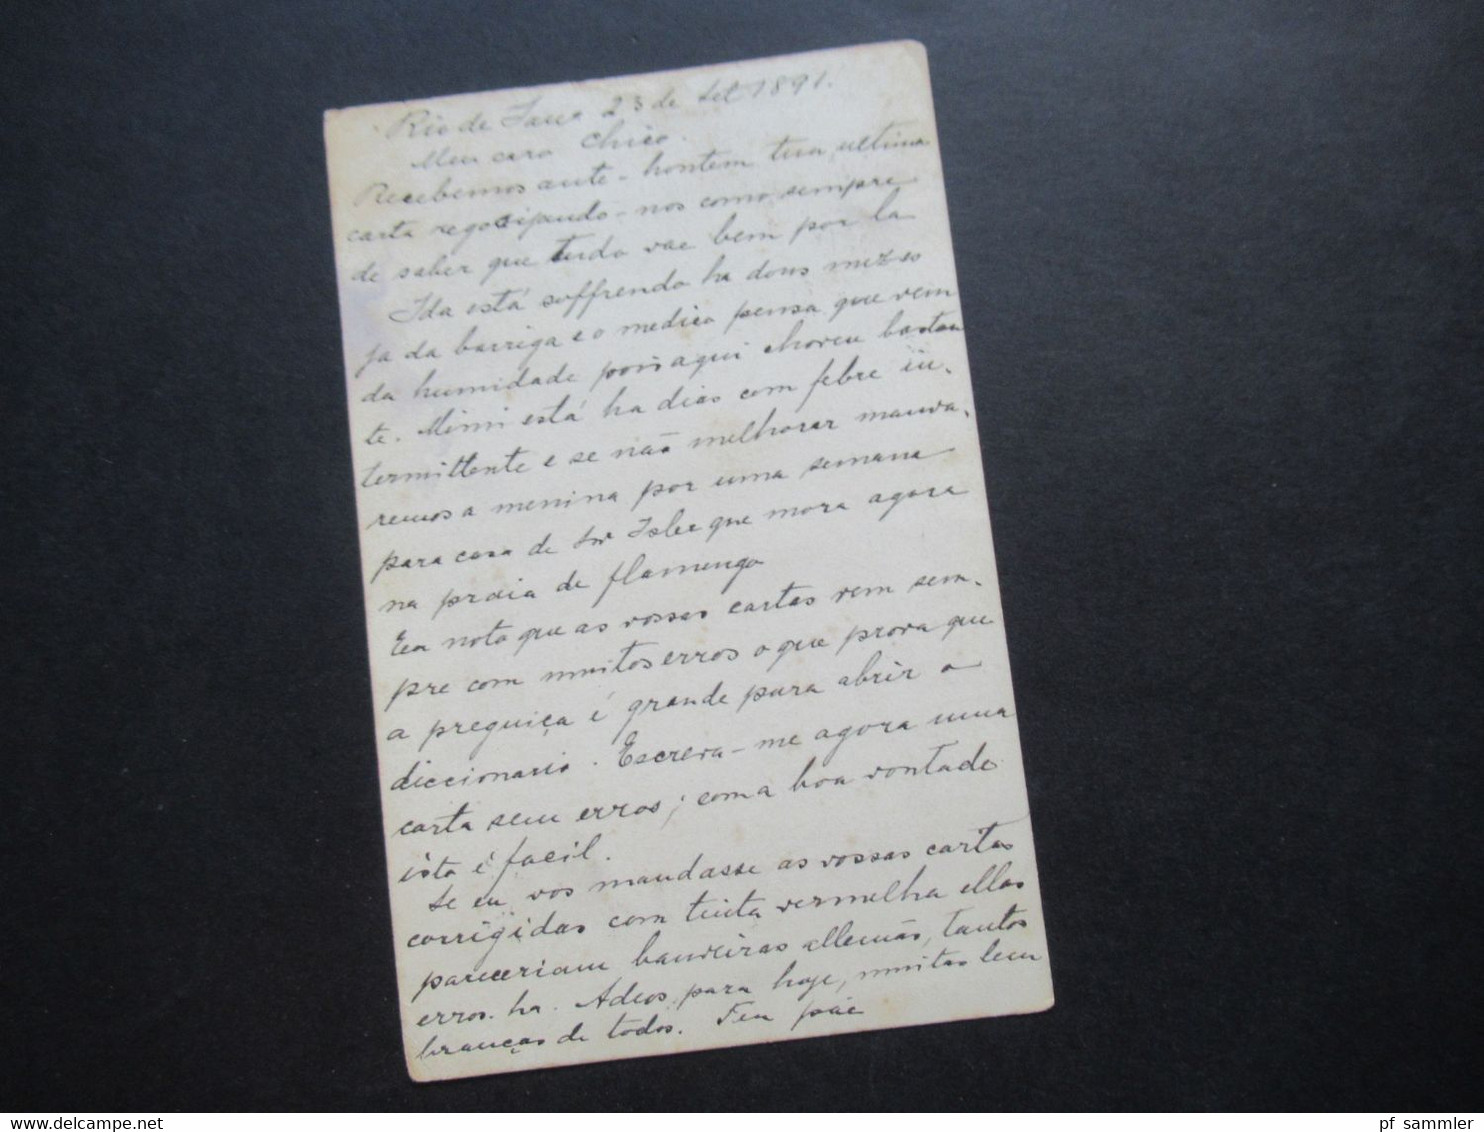 Rio de Jano 23 de Set 1891.
Meu caro Chico.
Recebemos ante-hontem tua ultima
carta regosijando-nos como sempre
de saber que tudo vae bem por la
Ida está soffrendo ha dous mezes
ja da barriga e o medico pensa que vem
da humidade pois aqui choveu bastan
te. Mimi está ha dias com febre in-
termittente e se não melhorar manda-
remos a menina por uma semana
para casa de Snr que mora agora
na praia de flamengo
Eu noto que as vossas cartas vem sem-
pre com muitos erros o que prova que
a preguiça é grande para abrir o
diccionario. Escreva-me agora uma
carta sem erros; com a boa vontade
isto é facil.
Se eu vos mandasse as vossas cartas
corrigidas com tinta vermelha ellas
pareceriam bandeiras allemãs, tantos
erros ha. Adeos para hoje, muitas lem
branças de todos. Teu páe
pf sammler